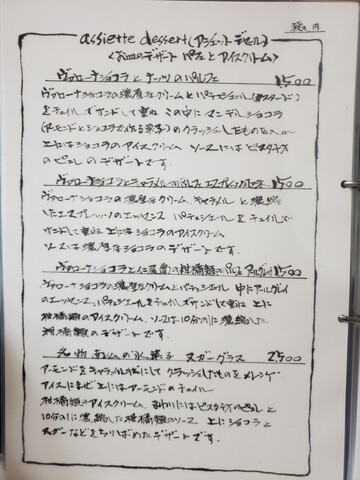 税込 円
assiette dessert (アシェット デセール)
<お皿のデザート パフェとアイスクリーム>
ヴァローナショコラとナッツのパルフェ 1500
ヴァローナショコラの濃厚なクリームとパティシェール(カスタード)
をチュイルでサンドして重ね この中に マンデルショコラ
(アーモンドとショコラで作る菓子)のクラッシュしたものを入れ
上にはショコラのアイスクリーム ソースにはピスタチオ
のピュレ のデザートです。
ヴァローナショコラとキャラメルのパルフェ エスプレッソ 1500
ヴァローナショコラの濃厚なクリーム、キャラメル と 濃縮
したエスプレッソのエッセンス パティシェールをチュイルズ
サンドして重ね 上にはショコラのアイスクリーム
ソースは濃厚なショコラのデザートです。
ヴァローナショコラと の柑橘類のパルフェ アールグレイ 1500
ヴァローナショコラの濃厚なクリームとパティシェール 中にアールグレイ
のエッセンス、パティシェールをチュイルズサンドして重ね 上に
柑橘類のアイスクリーム、ソースは10分の1に濃縮した
柑橘類のデザートです。
名物 の氷菓子 ヌガーグラス 1500
アーモンドをキャラメルにして クラッシュしたものをメレンゲ
アイスにまぜ 上にはアーモンドのチュイル
柑橘類のアイスクリーム、まわりにはピスタチオのピュレと
10分の1に濃縮した柑橘類のソース 上にショコラと
ヌガーなどをちりばめたデザートです。